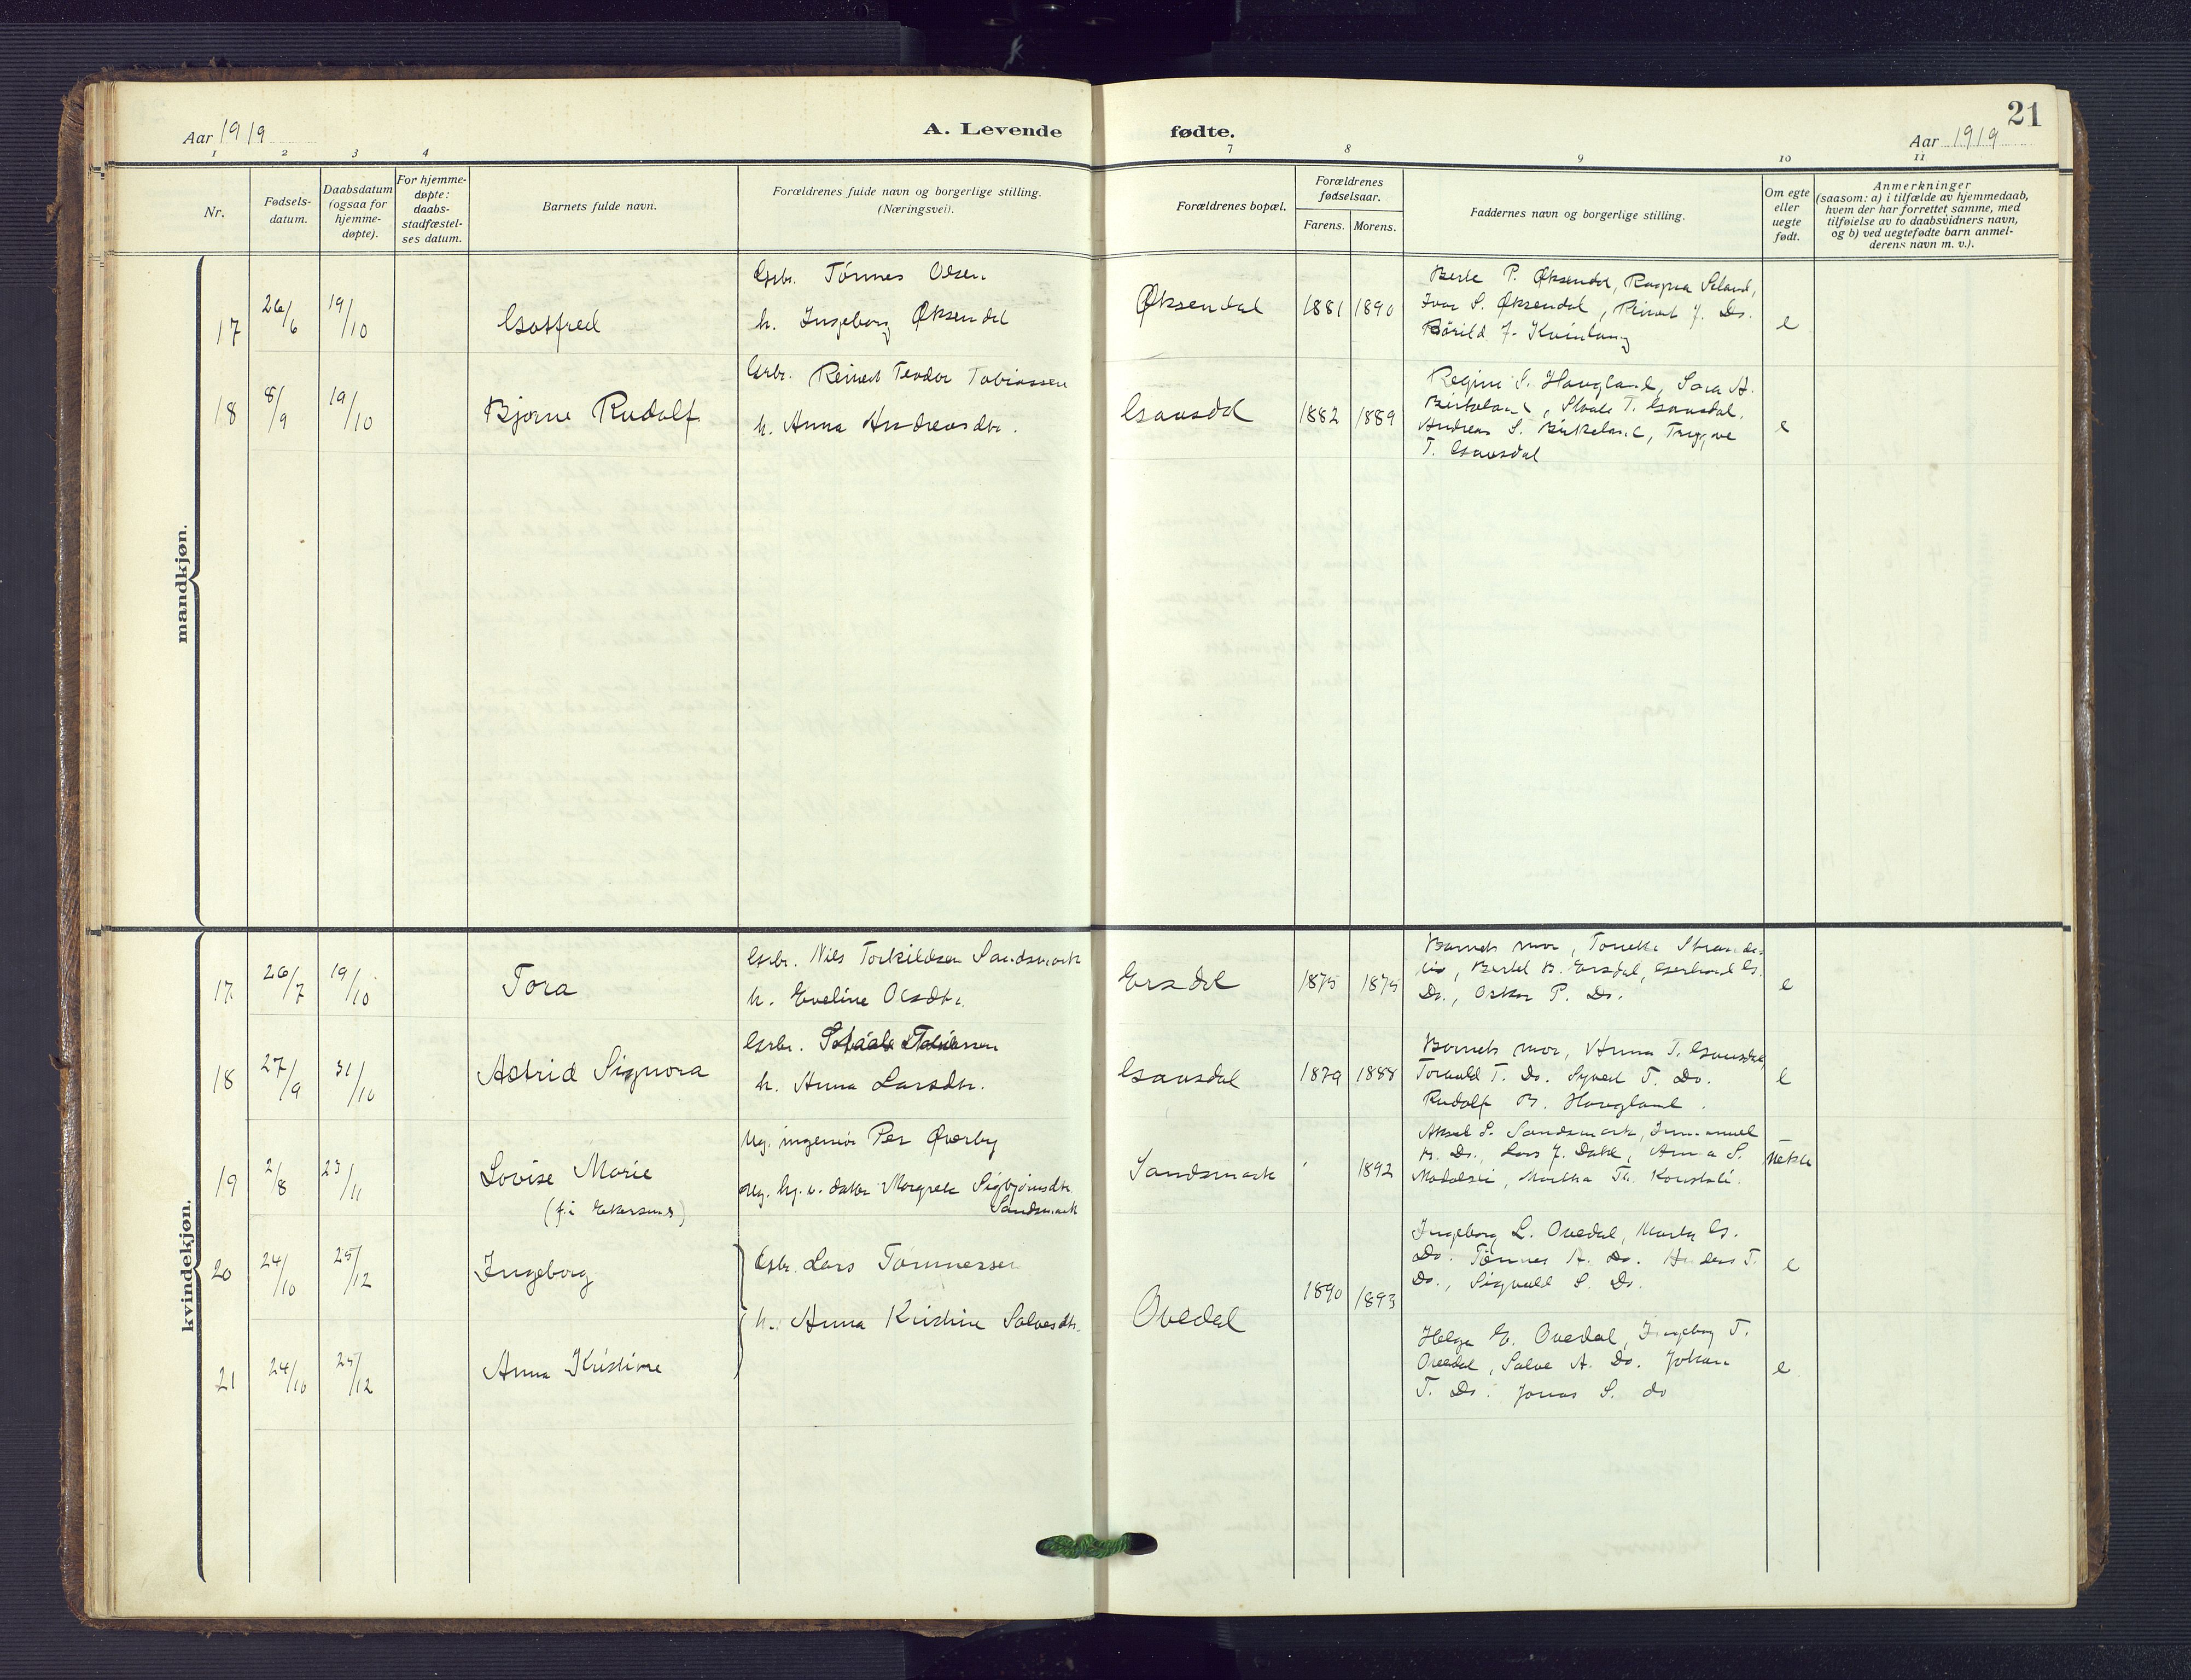 21
Aar 1919
A. Levende fødte.
Aar 1919
1 2 3 4 7 8 9 10 11
Nr.
Fødsels-
datum.
Daabsdatum
(ogsaa for
hjemme-
døpte).
For hjemme-
døpte:
daabs-
stadfæstel-
ses datum.
Barnets fulde navn.
Forældrenes fulde navn og borgerlige stilling.
(Næringsvei).
Forældrenes bopæl.
Forældrenes
fødselsaar.
Farens. Morens.
Faddernes navn og borgerlige stilling.
Om egte
eller
uegte
født.
Anmerkninger
(saasom: a) i tilfælde av hjemmedaab,
hvem der har forrettet samme, med
tilføielse av to daabsvidners navn,
og b) ved uegtefødte barn anmel-
derens navn m. v.).
mandkjøn.
17 26/6 19/10 Gotfred
Gbr. Tønnes Olsen
h. Ingeborg Øksendal
Øksendal 1881 1890
Berte P. Øksendal, Ragna Seland,
Ivar S. Øksendal, J. Do.
Bårild J. Kvinlaug
e
18 8/9 19/10 Bjarne Rudolf
Gbr. Reinert Teodor Tobiassen
h. Anna Andreasdtr.
Gausdal 1882 1889
Regine S. Haugland, Sara A.
Birkeland, Ståle T. Gausdal,
Andreas S. Birkeland, Trygve
T. Gausdal
e
kvindekjøn.
17 26/7 19/10 Tora
Gbr. Nils Torkildsen Sandsmark
h. Eveline Olsdtr.
Ersdal 1875 1875
Barnets mor, Tonette Strande-
lie, Bertel B. Ersdal, Gerhard G.
Do., Oskar P. Do.
e
18 27/9 31/10 Astrid Signora
Gbr. Staale Tobiassen
h. Anna Larsdtr.
Gausdal 1879 1888
Barnets mor, Anna T. Gausdal,
Torvald T. Do. Syvert T. Do.
Rudolf B. Haugland.
e
19 2/8 23/11 Lovise Marie
(f. i Ekersund)
Ug. ingeniør Per Øverby
Ug. Margrete Sigbjørnsdtr.
Sandsmark
Sandsmark 1892
Aksel S. Sandsmark, Immanuel
Do., Lars J. Dahl, Anna S.
Modalsli, Martha Th. Konstali.
uekte
20 24/10 25/12 Ingeborg
Gbr. Lars Tønnessen
h. Anna Kristine Salvesdtr.
Ovedal 1890 1893
Ingeborg L. Ovedal, Marta G.
Do. Tønnes A. Do. Anders T.
Do., Sigvald S. Do.
e
21 24/10 25/12 Anna Kristine
Helga E. Ovedal, Ingeborg T.
Ovedal, Salve A. Do. Johan
T. Do. Jonas S. do
e